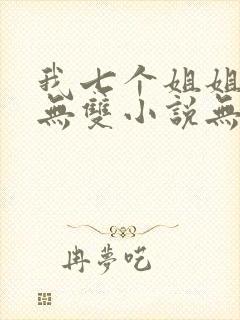 我七个姐姐
無雙小說無
冉夢呓